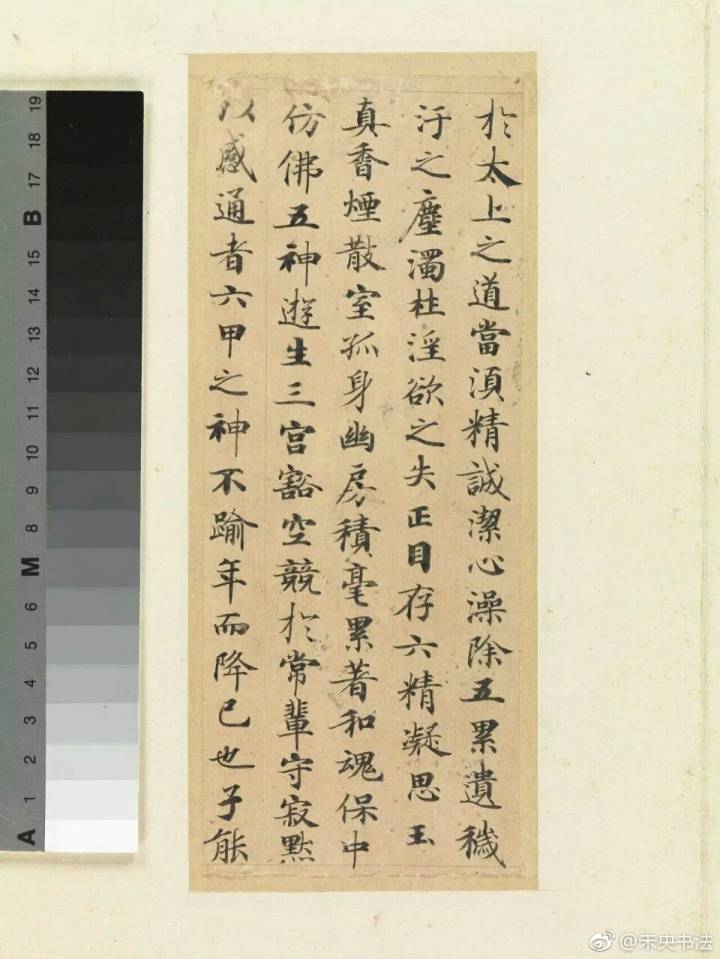 於太上之道當湏精誠潔心澡除五累遺穢
汙之塵濁杜淫欲之失正目存六精凝思玉
真香煙散室孤身幽房積毫累著和魂保中
仿佛五神遊生三宮豁空競於常輩守寂默
以感通者六甲之神不踰年而降己也子能
19
18
17
B
16
15
14
13
12
11
10
9
8
M
7
6
5
4
3
2
1
A
@未央书法